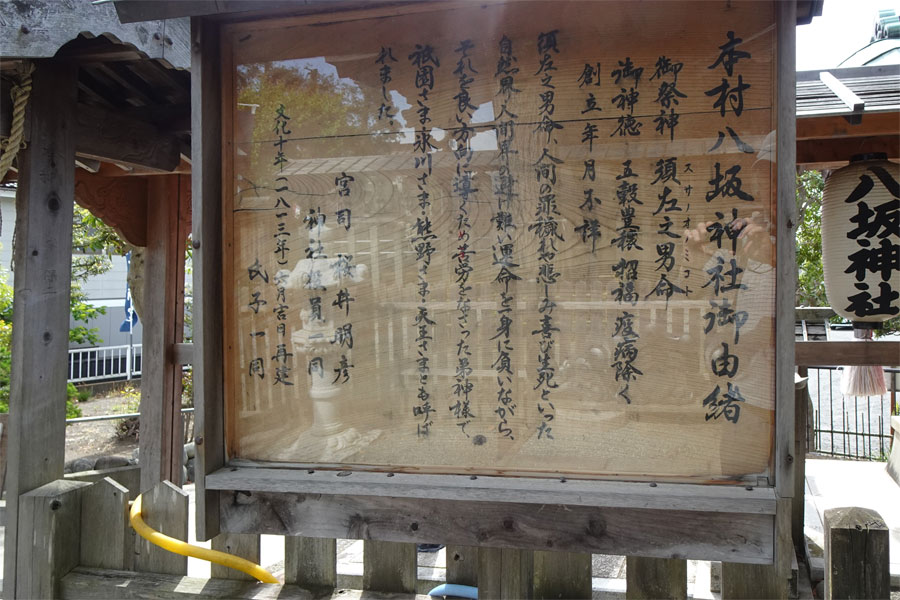 本村八坂神社御由緒
御祭神 須左之男命
スサノオノミコト
御神徳 五穀豊穣 招福 疫病除く
創立年月不詳
須左之男命、人間の罪穢れや悲しみ喜び生死といった
自然界、人間界の運は難い運命を一身に負いながら、
それを良い方向に導くため苦労をなさった弟神様で、
祇園さま・氷川さま・熊野さま・天王さまとも呼ば
れました。
宮司 桜井朋彦
神社役員一同
文化十年(一八一三年)六月吉日再建
氏子一同
八坂神社